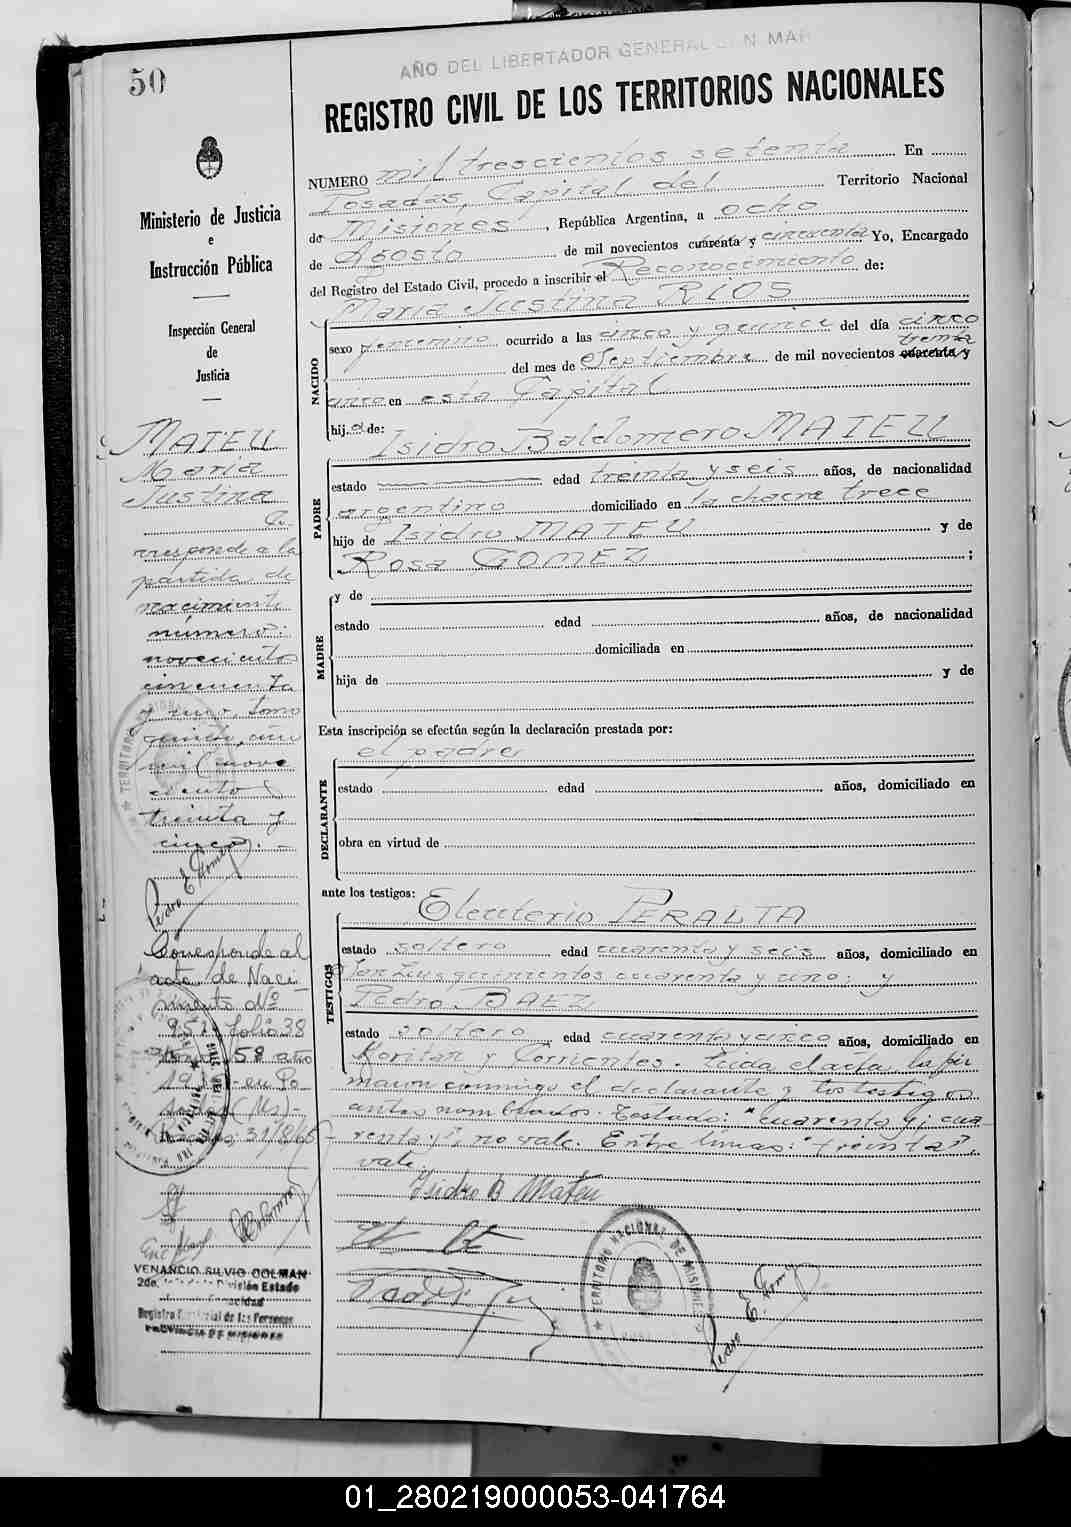 50
AÑO DEL LIBERTADOR GENERAL SAN MAR
REGISTRO CIVIL DE LOS TERRITORIOS NACIONALES
Ministerio de Justicia
e
Instrucción Pública
Inspección General
de
Justicia
MATEU
Maria
Justina
Co-
rresponde a la
partida de
nacimiento
número:
novecientos
cincuenta
y uno, tomo
año
mil nove
cientos
treinta y
cinco. -
Pedro E. Gomez
Corresponde al
acta de Naci
miento Nº
951 folio 38
58 año
en Po-
sadas (Ms)-
Posadas, 31/8/65
VENANCIO SILVIO COLMAN
2do. División Estado
Capacidad
Registro Provincial de las Personas
PROVINCIA DE MISIONES
NUMERO mil trescientos setenta En
Posadas, Capital del Territorio Nacional
de Misiones, República Argentina, a ocho
de Agosto de mil novecientos cuarenta y cincuenta Yo, Encargado
del Registro del Estado Civil, procedo a inscribir el Reconocimiento de:
Maria Justina RIOS
NACIDO
sexo femenino ocurrido a las cinco y quince del día cinco
treinta
del mes de Septiembre de mil novecientos cuarenta y
cinco en esta Capital
hij a de:
Isidro Baldomero MATEU
PADRE
estado edad treinta y seis años, de nacionalidad
argentino domiciliado en la chacra trece
hijo de Isidro MATEU y de
Rosa GOMEZ ;
MADRE
y de
estado edad años, de nacionalidad
domiciliada en
hija de y de
Esta inscripción se efectúa según la declaración prestada por:
el padre
DECLARANTE
estado edad años, domiciliado en
obra en virtud de
ante los testigos:
Eleuterio PERALTA
TESTIGOS
estado soltero edad cuarenta y seis años, domiciliado en
San Luis quinientos cuarenta y uno; y
Pedro BAEZ
estado soltero, edad cuarenta y cinco años, domiciliado en
Roritan y Corrientes. Leida el acta, la fir
maron conmigo el declarante y los testigos
antes nombrados. Testado: "cuarenta y; cua-
renta y" no vale. Entre lineas: "treinta",
vale.
Isidro B Mateu
TERRITORIO NACIONAL DE MISIONES
Pedro E. Gomez
01_280219000053-041764